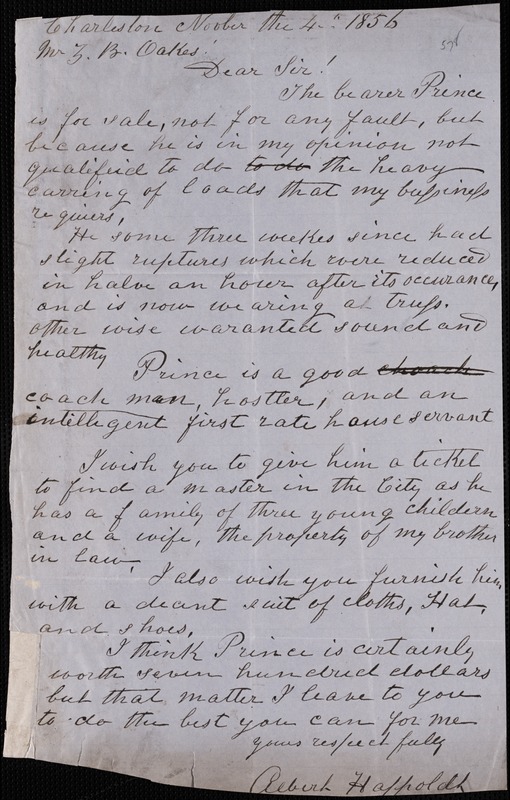 Charleston Novber the 4th 1856
576
Mr Z. B. Oakes!
Dear Sir!
The bearer Prince
is for sale, not for any fault, but
because he is in my opinion not
qualifiid to do to do the heavy
carring of loads that my bussiness
requiers,
He some three weekes since had
slight ruptures which were reduced
in halve an hour after its occurance,
and is now wearing at truss.
other wise waranted sound and
healthy
Prince is a good choach
coach man, hostler, and an
intelligent first rate house servant
I wish you to give him a ticket
to find a master in the City as he
has a family of three young childern
and a wife, the property of my brother
in law,
I also wish you furnish him
with a decant suit of cloths, Hat,
and shoes.
I think Prince is certainly
worth seven hundred dollars
but that matter I leave to you
to do the best you can for me
yours respectfully
Albert Happoldt